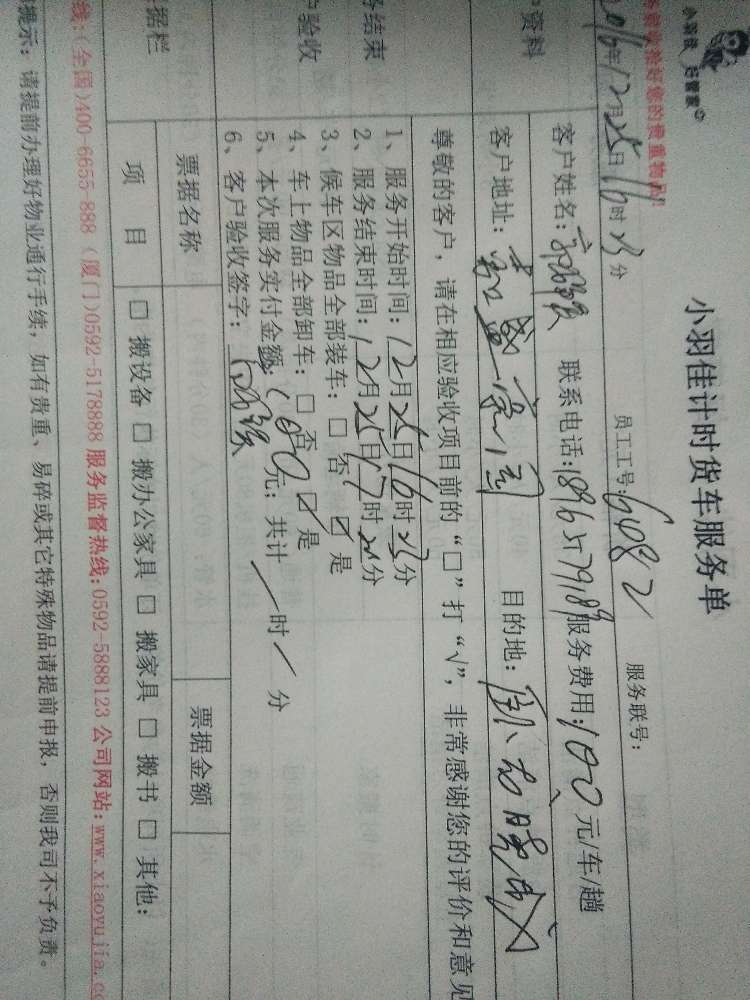 小羽佳 好管家
小羽佳计时货车服务单
您的贵重物品!
2016年12月25日16时23分 员工工号:6082 服务联号:
户资料
客户姓名: 联系电话:服务费用:100元/车/趟
客户地址: 目的地:
务结束
户验收
尊敬的客户,请在相应验收项目前的“□”打“√”,非常感谢您的评价和意见
1、服务开始时间:12月25日16时23分
2、服务结束时间:12月25日17时分
3、候车区物品全部装车:□ 否 ☑ 是
4、车上物品全部卸车:□ 否 ☑ 是
5、本次服务实付金额:100元;共计/时/分
6、客户验收签字:
据栏
票据名称 票据金额
项目 □ 搬设备 □ 搬办公家具 □ 搬家具 □ 搬书 □ 其他:
线:(全国)400-6655-888 (厦门)0592-5178888 服务监督热线:0592-5888123 公司网站:www.xiaoyujia.c
提示:请提前办理好物业通行手续,如有贵重、易碎或其它特殊物品请提前申报,否则我司不予负责。